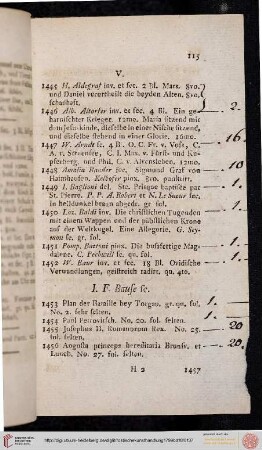 113
V.
1445 H. Aldegraf inv. et sec. 2 Bl. Mars. 8vo.
und Daniel verurtheilt die beyden Alten. 8vo.
schadhaft.
1446 Alb. Altorfer inv. et sec. 4 Bl. Ein ge-
harnischter Krieger. 12mo. Maria sitzend mit
dem Jesuskinde, dieselbe in einer Nische sitzend,
und dieselbe stehend in einer Glorie. 16mo.
2.
1447 W. Arndt sc. 4 Bl. O. C. Fr. v. Voss, C.
A. v. Struensee, C. J. Max. v. Fürst- und Ku-
pferberg, und Phil. C. v. Alvensleben. 12mo.
16
1448 Amalia Baader fec. Sigmund Graf von
Haimhausen. 8vo. punktirt.
10.
1449 I. Baglioni del. Ste. Prisque baptisée par
St. Pierre. P. P. A. Robert et N. Le Sueur inc.
in helldunkel braun abgedr. gr. fol.
1.
1450 Laz. Baldi inv. Die christlichen Tugenden
mit einem Wappen und der päbstlichen Krone
auf der Weltkugel. Eine Allegorie. G.
sc. gr. fol.
1451 Pomp. Battoni pinx. Die bussfertige Mag-
dalene. C. sc. gr. qu. fol.
1452 W. Baur inv. et sec. 18 Bl. Ovidische
Verwandlungen, geistreich radirt. qu. 4to.
I. F. Bause sc.
1453 Plan der Bataille bey Torgau. gr. qu. fol.
No. 2. sehr selten.
1.
1454 Paul Petrovitsch. No. 20. fol. selten.
20
1455 Josephus II. Romanorum Rex. No. 25.
fol. selten.
1456 Augusta princeps hereditaria Brunsv. et
Luneb. No. 27. fol. selten.
20.
H 2
1457